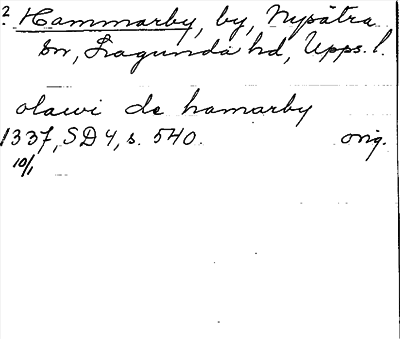 2. Hammarby, by, Nysätra
sn, Lagunda hd, Upps. l.
olawi de hamarby
1337, SD 4, s. 540. orig.
10/1